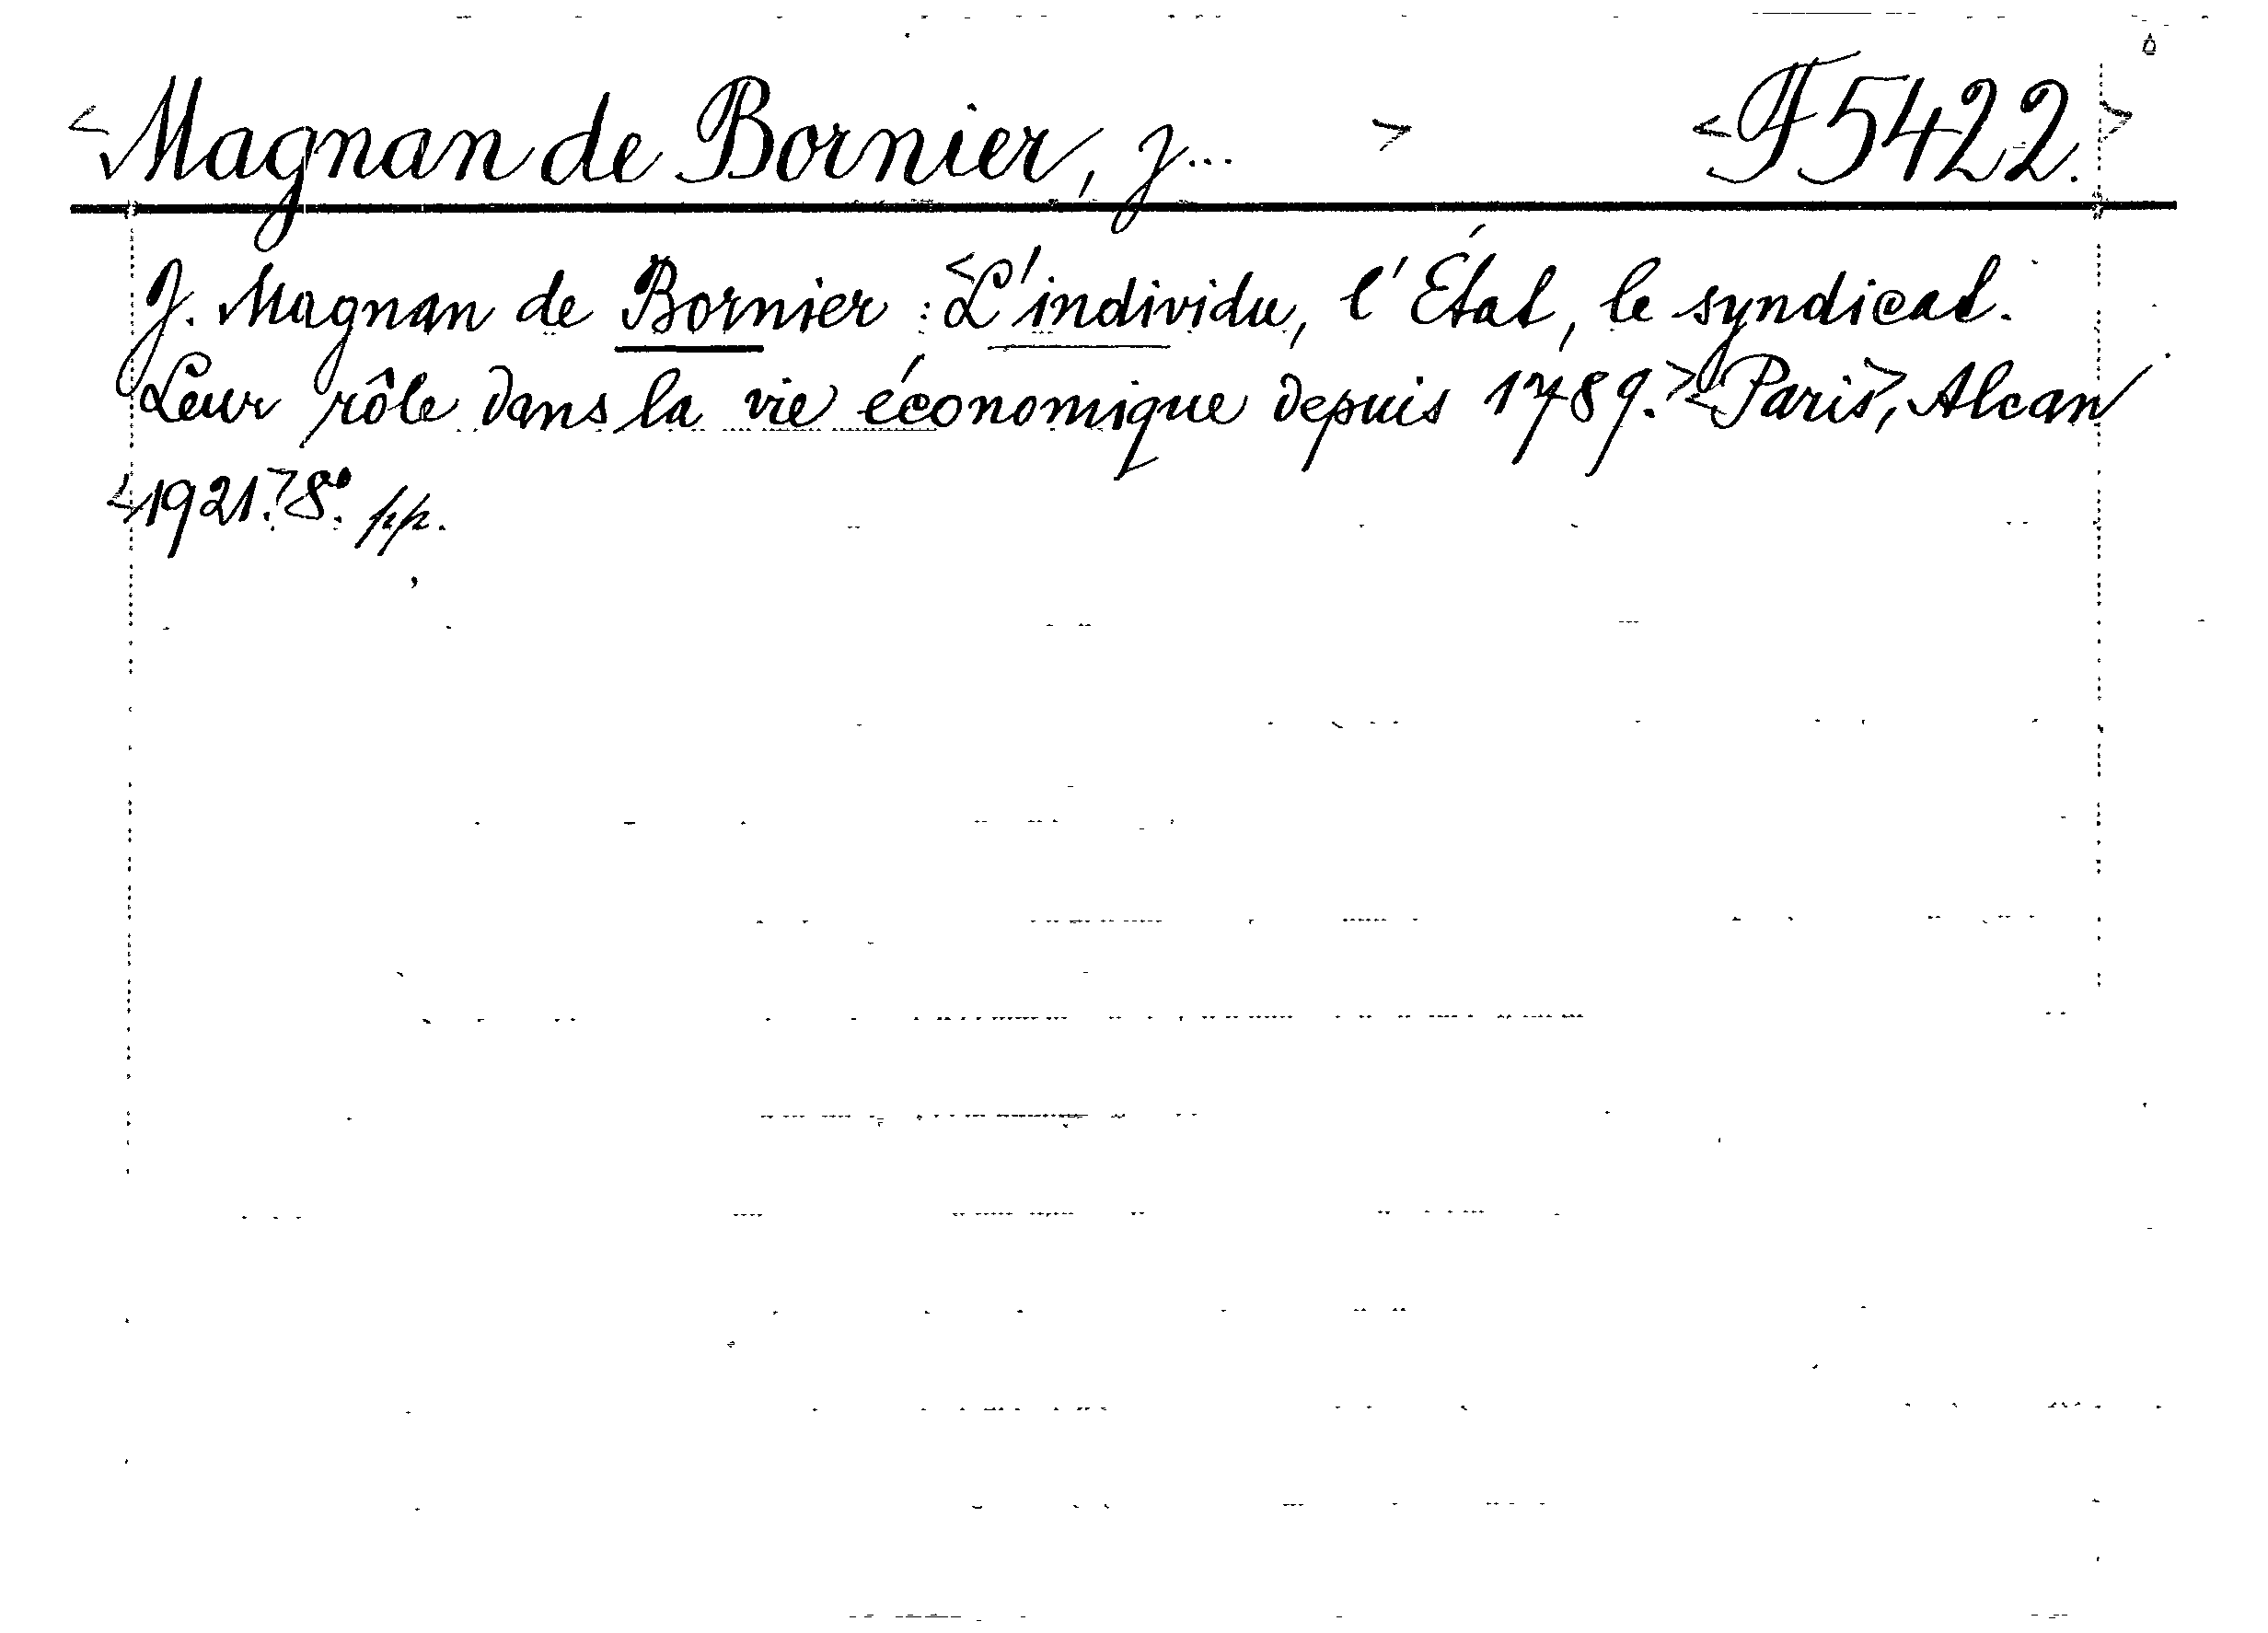 <Magnan de Bornier, J...> <F5422.>
J. Magnan de Bornier : <L'individu, l'État, le syndicat.
Leur rôle dans la vie économique depuis 1789.> <Paris>, Alcan
<1921.> 8°. pp.